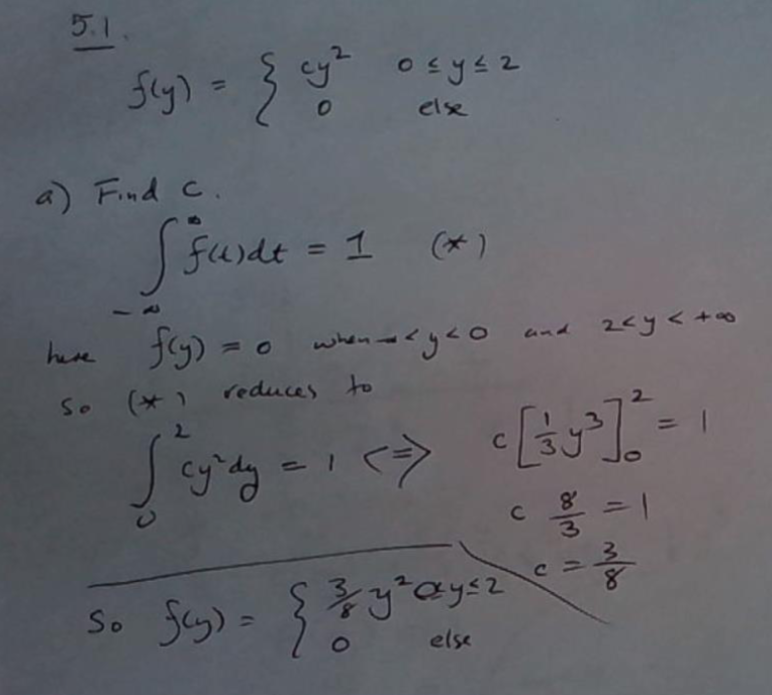 5.1.
f(y) = { cy² 0 ≤ y ≤ 2
0 else
a) Find c.
∫_{-∞}^{∞} f(t)dt = 1 (*)
here f(y) = 0 when -∞ < y < 0 and 2 < y < +∞
so (*) reduces to
∫_0^2 cy²dy = 1 <=> c[1/3 y³]_0^2 = 1
c 8/3 = 1
c = 3/8
So f(y) = { 3/8 y² 0 ≤ y ≤ 2
0 else